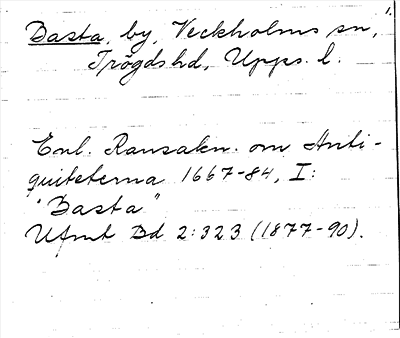 1.
Basta, by, Veckholms sn,
Trögds hd, Upps. l.
Enl. Ransakn. om Anti-
quiteterna 1667-84, I:
"Basta"
Ufmt Bd 2:323 (1877-90).